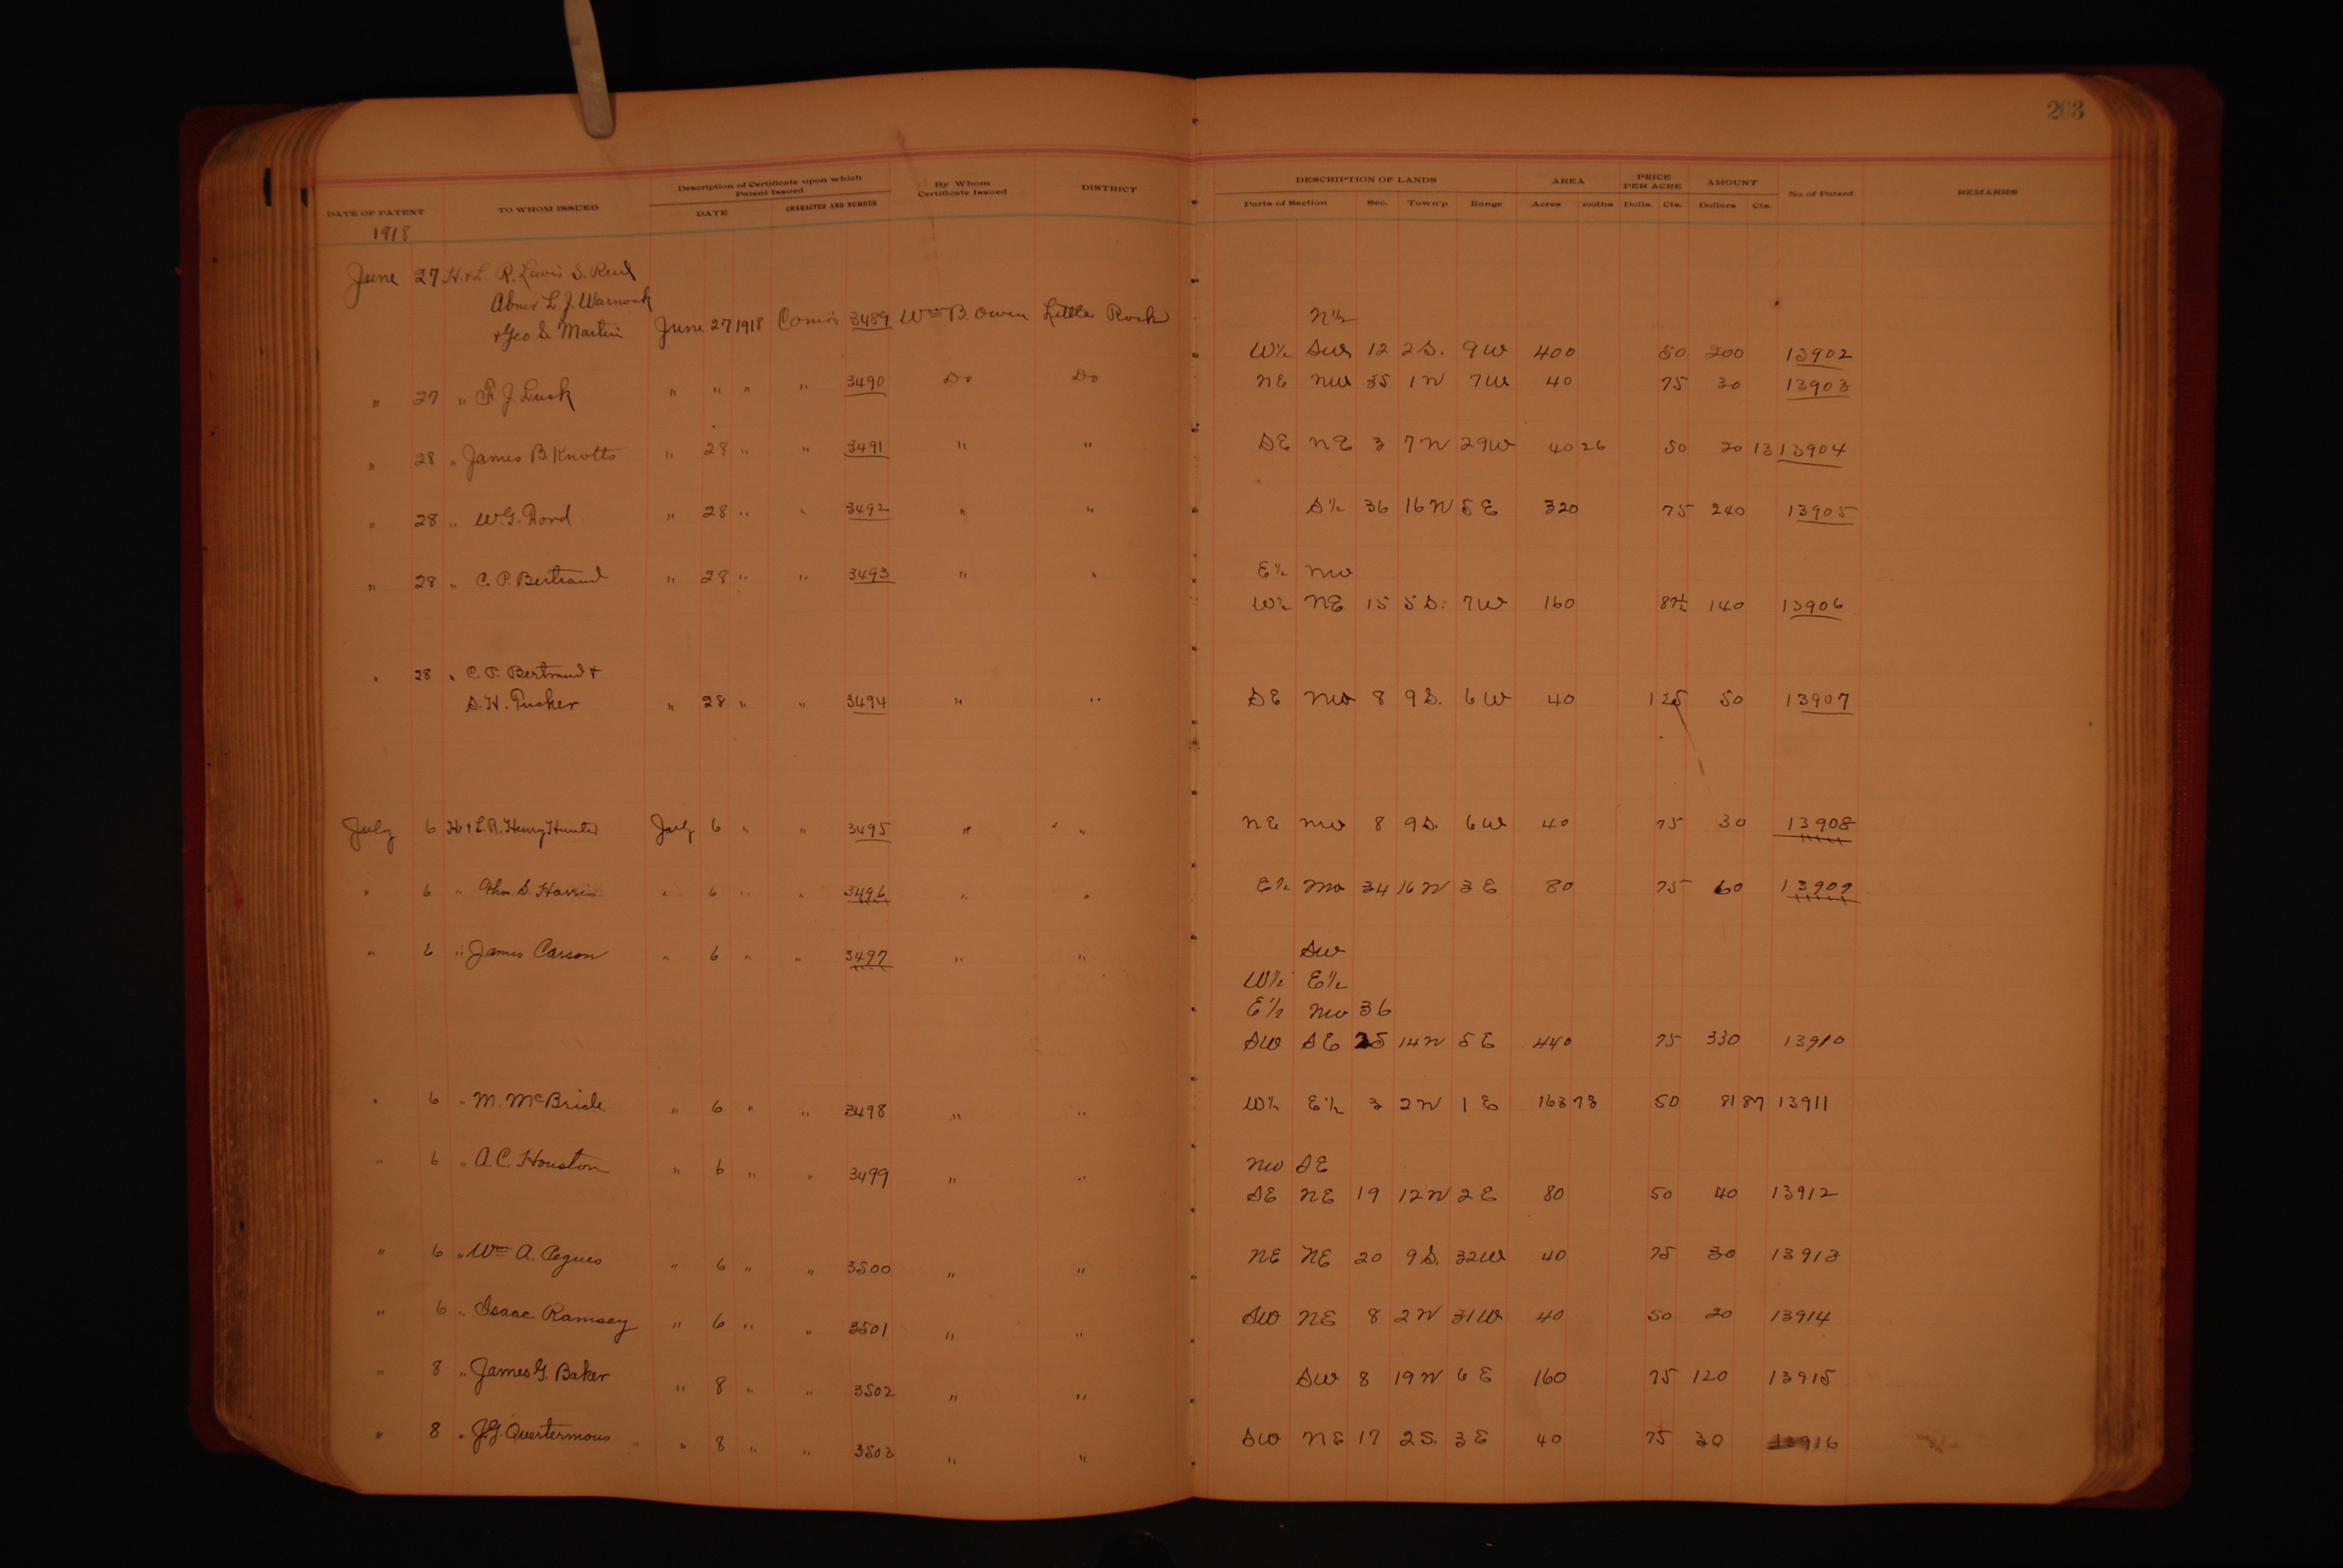 203
DATE OF PATENT TO WHOM ISSUED Description of Certificate upon which Patent Issued DATE CHARACTER AND NUMBER By Whom Certificate Issued DISTRICT DESCRIPTION OF LANDS Parts of Section Sec. Town'p Range AREA Acres 100ths PRICE PER ACRE Dolls. Cts. AMOUNT Dollars Cts. No. of Patent REMARKS
1918
June 27 H. & L. R. Lewis S. Reul
Abner L. J. Warnock
& Geo S. Martin June 27 1918 Com'rs 3489 Wm B. Owen Little Rock N½
W½ SW 12 2 S. 9 W 400 50 200 13902
" 27 " F. J. Lusk " " " " 3490 Do Do NE NW 35 1 N 7 W 40 75 30 13903
" 28 " James B Knotts " 28 " " 3491 " " SE NE 3 7 N 29 W 40 26 50 20 13 13904
" 28 " W. G. Dond " 28 " " 3492 " " S½ 36 16 N 5 E 320 75 240 13905
" 28 " C. P. Bertrand " 28 " " 3493 " " E½ NW
W½ NE 15 5 S. 7 W 160 87½ 140 13906
" 28 " C. P. Bertrand &
S. H. Tucker " 28 " " 3494 " " SE NW 8 9 S. 6 W 40 1 25 50 13907
July 6 H & L. R. Henry Hunter July 6 " " 3495 " " NE NW 8 9 S. 6 W 40 75 30 13908
" 6 " Thos. S. Harris " 6 " " 3496 " " E½ NW 34 16 N 3 E 80 75 60 13909
" 6 " James Carson " 6 " " 3497 " " SW
W½ E½
E½ NW 36
SW SE 25 14 N 5 E 440 75 330 13910
" 6 " M. McBride " 6 " " 3498 " " W½ E½ 3 2 N 1 E 163 73 50 81 87 13911
" 6 " A. C. Houston " 6 " " 3499 " " NW SE
SE NE 19 12 N 2 E 80 50 40 13912
" 6 " Wm A. Pegues " 6 " " 3500 " " NE NE 20 9 S. 32 W 40 75 30 13913
" 6 " Isaac Ramsey " 6 " " 3501 " " SW NE 8 2 N 31 W 40 50 20 13914
" 8 " James G. Baker " 8 " " 3502 " " SW 8 19 N 6 E 160 75 120 13915
" 8 " J. G. Quertermous " 8 " " 3503 " " SW NE 17 2 S. 3 E 40 75 30 13916